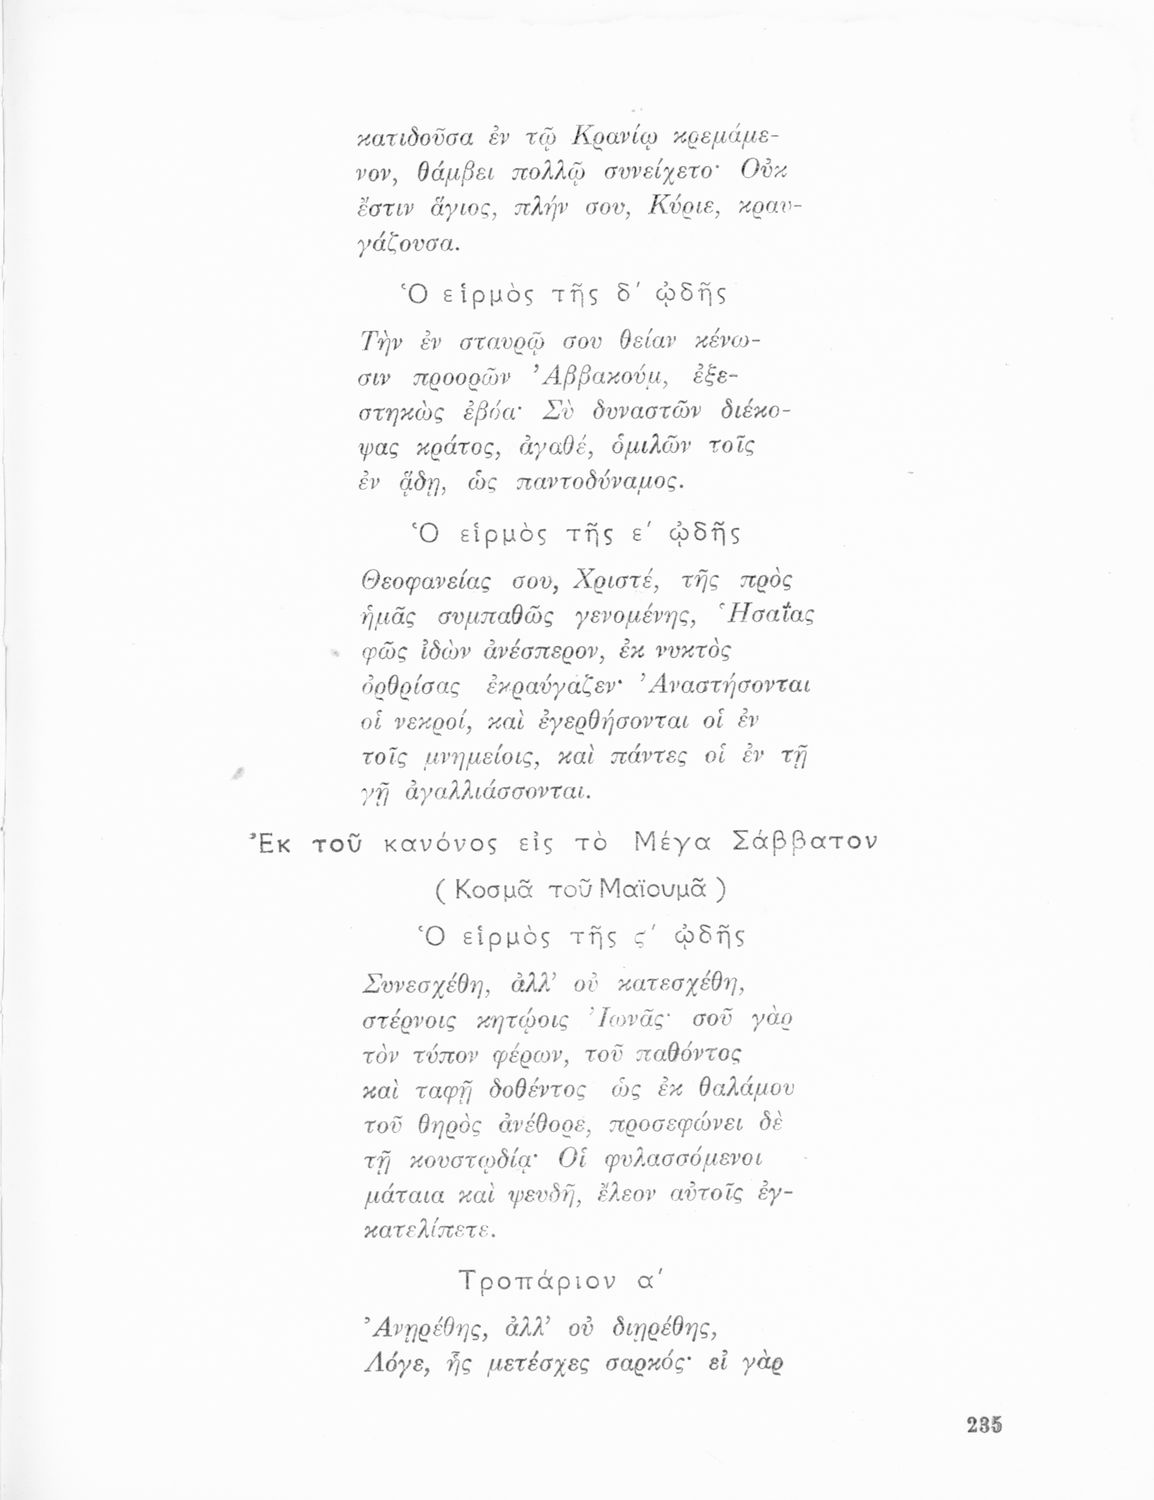 κατιδοῦσα ἐν τῷ Κρανίῳ κρεμάμε-
νον, θάμβει πολλῷ συνείχετο· Οὐκ
ἔστιν ἅγιος, πλήν σου, Κύριε, κραυ-
γάζουσα.
Ὁ εἱρμὸς τῆς δ′ ᾠδῆς
Τὴν ἐν σταυρῷ σου θείαν κένω-
σιν προορῶν Ἀββακούμ, ἐξε-
στηκὼς ἐβόα· Σὺ δυναστῶν διέκο-
ψας κράτος, ἀγαθέ, ὁμιλῶν τοῖς
ἐν ᾅδῃ, ὡς παντοδύναμος.
Ὁ εἱρμὸς τῆς ε′ ᾠδῆς
Θεοφανείας σου, Χριστέ, τῆς πρὸς
ἡμᾶς συμπαθῶς γενομένης, Ἡσαΐας
φῶς ἰδὼν ἀνέσπερον, ἐκ νυκτὸς
ὀρθρίσας ἐκραύγαζεν· Ἀναστήσονται
οἱ νεκροί, καὶ ἐγερθήσονται οἱ ἐν
τοῖς μνημείοις, καὶ πάντες οἱ ἐν τῇ
γῇ ἀγαλλιάσσονται.
Ἐκ τοῦ κανόνος εἰς τὸ Μέγα Σάββατον
( Κοσμᾶ τοῦ Μαϊουμᾶ )
Ὁ εἱρμὸς τῆς ς′ ᾠδῆς
Συνεσχέθη, ἀλλ’ οὐ κατεσχέθη,
στέρνοις κητῴοις Ἰωνᾶς· σοῦ γὰρ
τὸν τύπον φέρων, τοῦ παθόντος
καὶ ταφῇ δοθέντος ὡς ἐκ θαλάμου
τοῦ θηρὸς ἀνέθορε, προσεφώνει δὲ
τῇ κουστωδίᾳ· Οἱ φυλασσόμενοι
μάταια καὶ ψευδῆ, ἔλεον αὐτοῖς ἐγ-
κατελίπετε.
Τροπάριον α′
Ἀνῃρέθης, ἀλλ’ οὐ διῃρέθης,
Λόγε, ἧς μετέσχες σαρκός· εἰ γὰρ
235